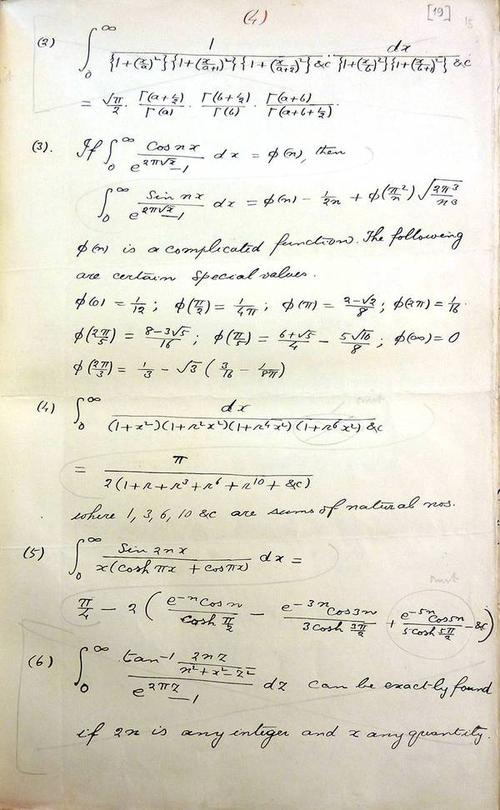 (4) [19] 15
(2) ∫₀^∞ 1/({1+(x/a)²}{1+(x/(a+1))²}{1+(x/(a+2))²} &c) · dx/({1+(x/b)²}{1+(x/(b+1))²} &c)
= √π/2 · Γ(a+½)/Γ(a) · Γ(b+½)/Γ(b) · Γ(a+b)/Γ(a+b+½).
(3). If ∫₀^∞ Cos nx/(e^(2π√x)−1) dx = φ(n), then
∫₀^∞ Sin nx/(e^(2π√x)−1) dx = φ(n) − 1/2n + φ(π²/n) √(2π³/n³)
φ(n) is a complicated function. The following
are certain special values.
φ(0) = 1/12; φ(π/2) = 1/4π; φ(π) = (2−√2)/8; φ(2π) = 1/16.
φ(2π/5) = (8−3√5)/16; φ(π/5) = (6+√5)/4 − 5√10/8; φ(∞) = 0
φ(2π/3) = 1/3 − √3 (3/16 − 1/8π)
(4) ∫₀^∞ dx/((1+x²)(1+r²x²)(1+r⁴x²)(1+r⁶x²) &c
= π/(2(1+r+r³+r⁶+r¹⁰+&c)
where 1, 3, 6, 10 &c are sums of natural nos.
(5) ∫₀^∞ Sin 2nx/(x(cosh πx + cos πx)) dx =
π/4 − 2 (e^(−n) Cos n/cosh π/2 − e^(−3n) cos 3n/3 cosh 3π/2 + e^(−5n) Cos 5n/5 cosh 5π/2 − &c)
(6) ∫₀^∞ tan⁻¹ (2nz/(n²+x²−z²))/(e^(2πz)−1) dz can be exactly found
if 2n is any integer and x any quantity.